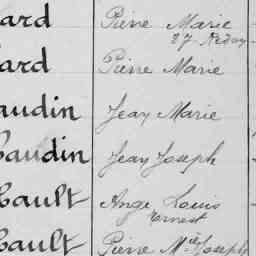 ard Pierre Marie
ard Pierre Marie
audin Jean Marie
audin Jean Joseph
ault Ange Louis
Ernest
ault Pierre Mie Joseph